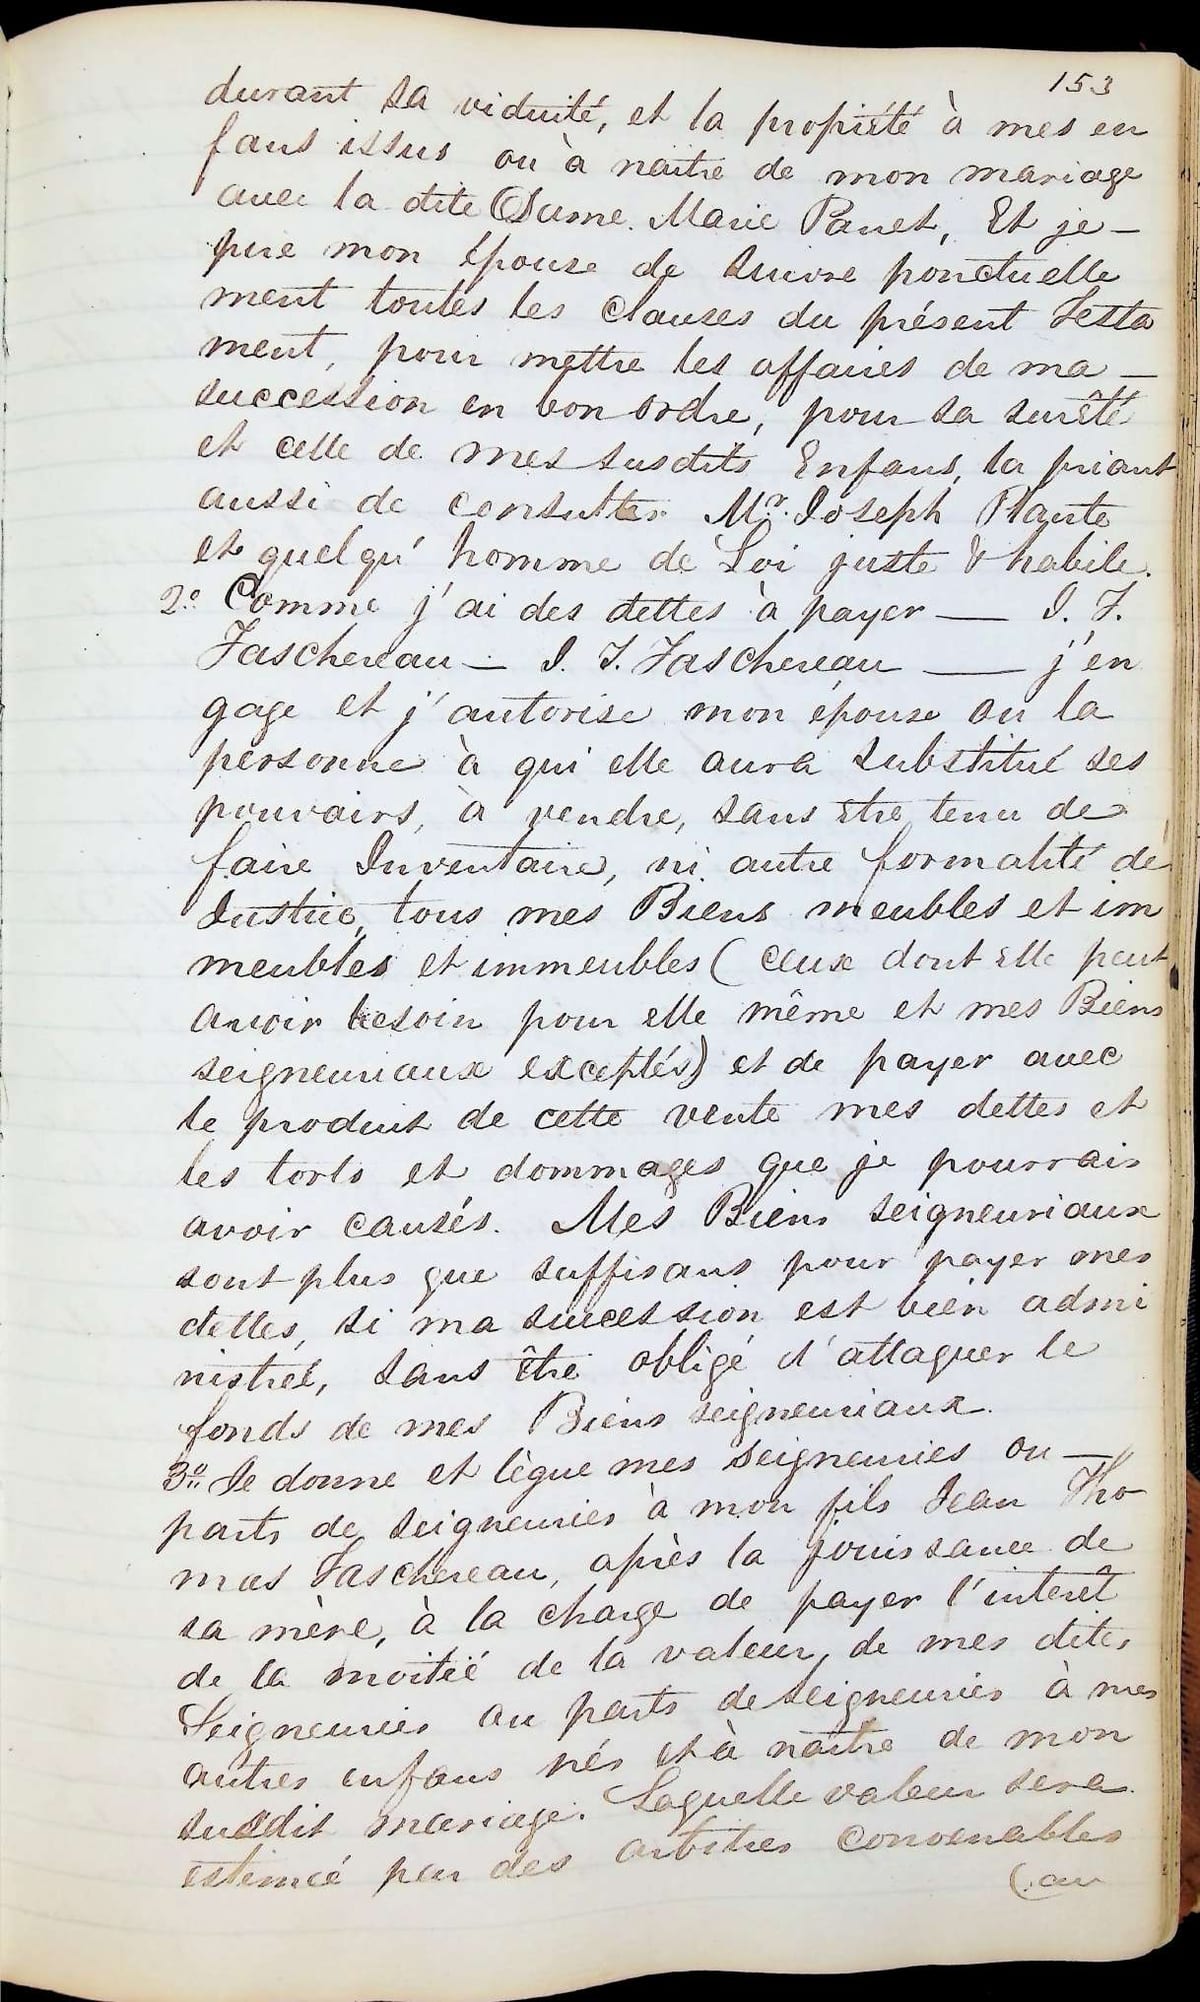 153
durant sa viduité, et la propriété à mes en
fans issus ou à naître de mon mariage
avec la dite Dame Marie Panet, Et je —
prie mon épouse de suivre ponctuelle
ment toutes les Clauses du présent Testa
ment, pour mettre les affaires de ma —
succession en bon ordre, pour sa sureté
et celle de mes susdits Enfans, la priant
aussi de consulter Mr. Joseph Plante
et quelqu' homme de Loi juste & habile.
2o. Comme j'ai des dettes à payer — J. T.
Taschereau — J. T. Taschereau — j'en
gage et j'autorise mon épouse ou la
personne à qui elle aura substitué ses
pouvoirs, à vendre, sans être tenu de
faire Inventaire, ni autre formalité de
Justice, tous mes Biens meubles et im
meubles et immeubles (ceux dont elle peut
avoir besoin pour elle même et mes Biens
seigneuriaux exceptés) et de payer avec
le produit de cette vente mes dettes et
les torts et dommages que je pourrais
avoir causés. Mes Biens seigneuriaux
sont plus que suffisans pour payer mes
dettes, si ma succession est bien admi
nistreé, sans être obligé d'attaquer le
fonds de mes Biens seigneuriaux.
3o. Je donne et lègue mes seigneuries ou —
parts de seigneuries à mon fils Jean Tho-
mas Taschereau, après la jouissance de
sa mère, à la charge de payer l'interêt
de la moitié de la valeur, de mes dites
Seigneuries ou parts de seigneuries à mes
autres enfans nés et à naître de mon
susdit mariage. Laquelle valeur sera
estimeé par des arbitres convenables
(au